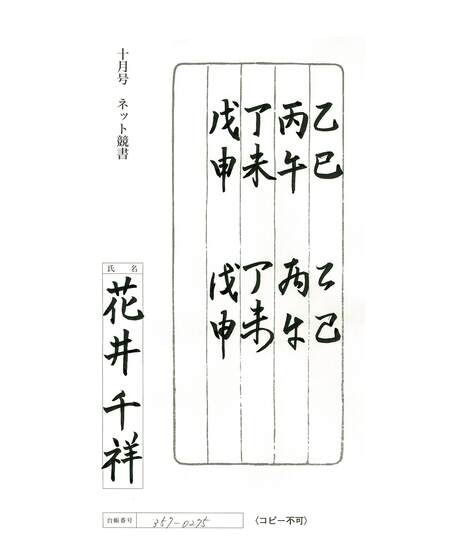 乙巳 乙巳
丙午 丙午
丁未 丁未
戊申 戊申
十月号 ネット競書
氏名
花井千祥
台帳番号 357-0275
〈コピー不可〉